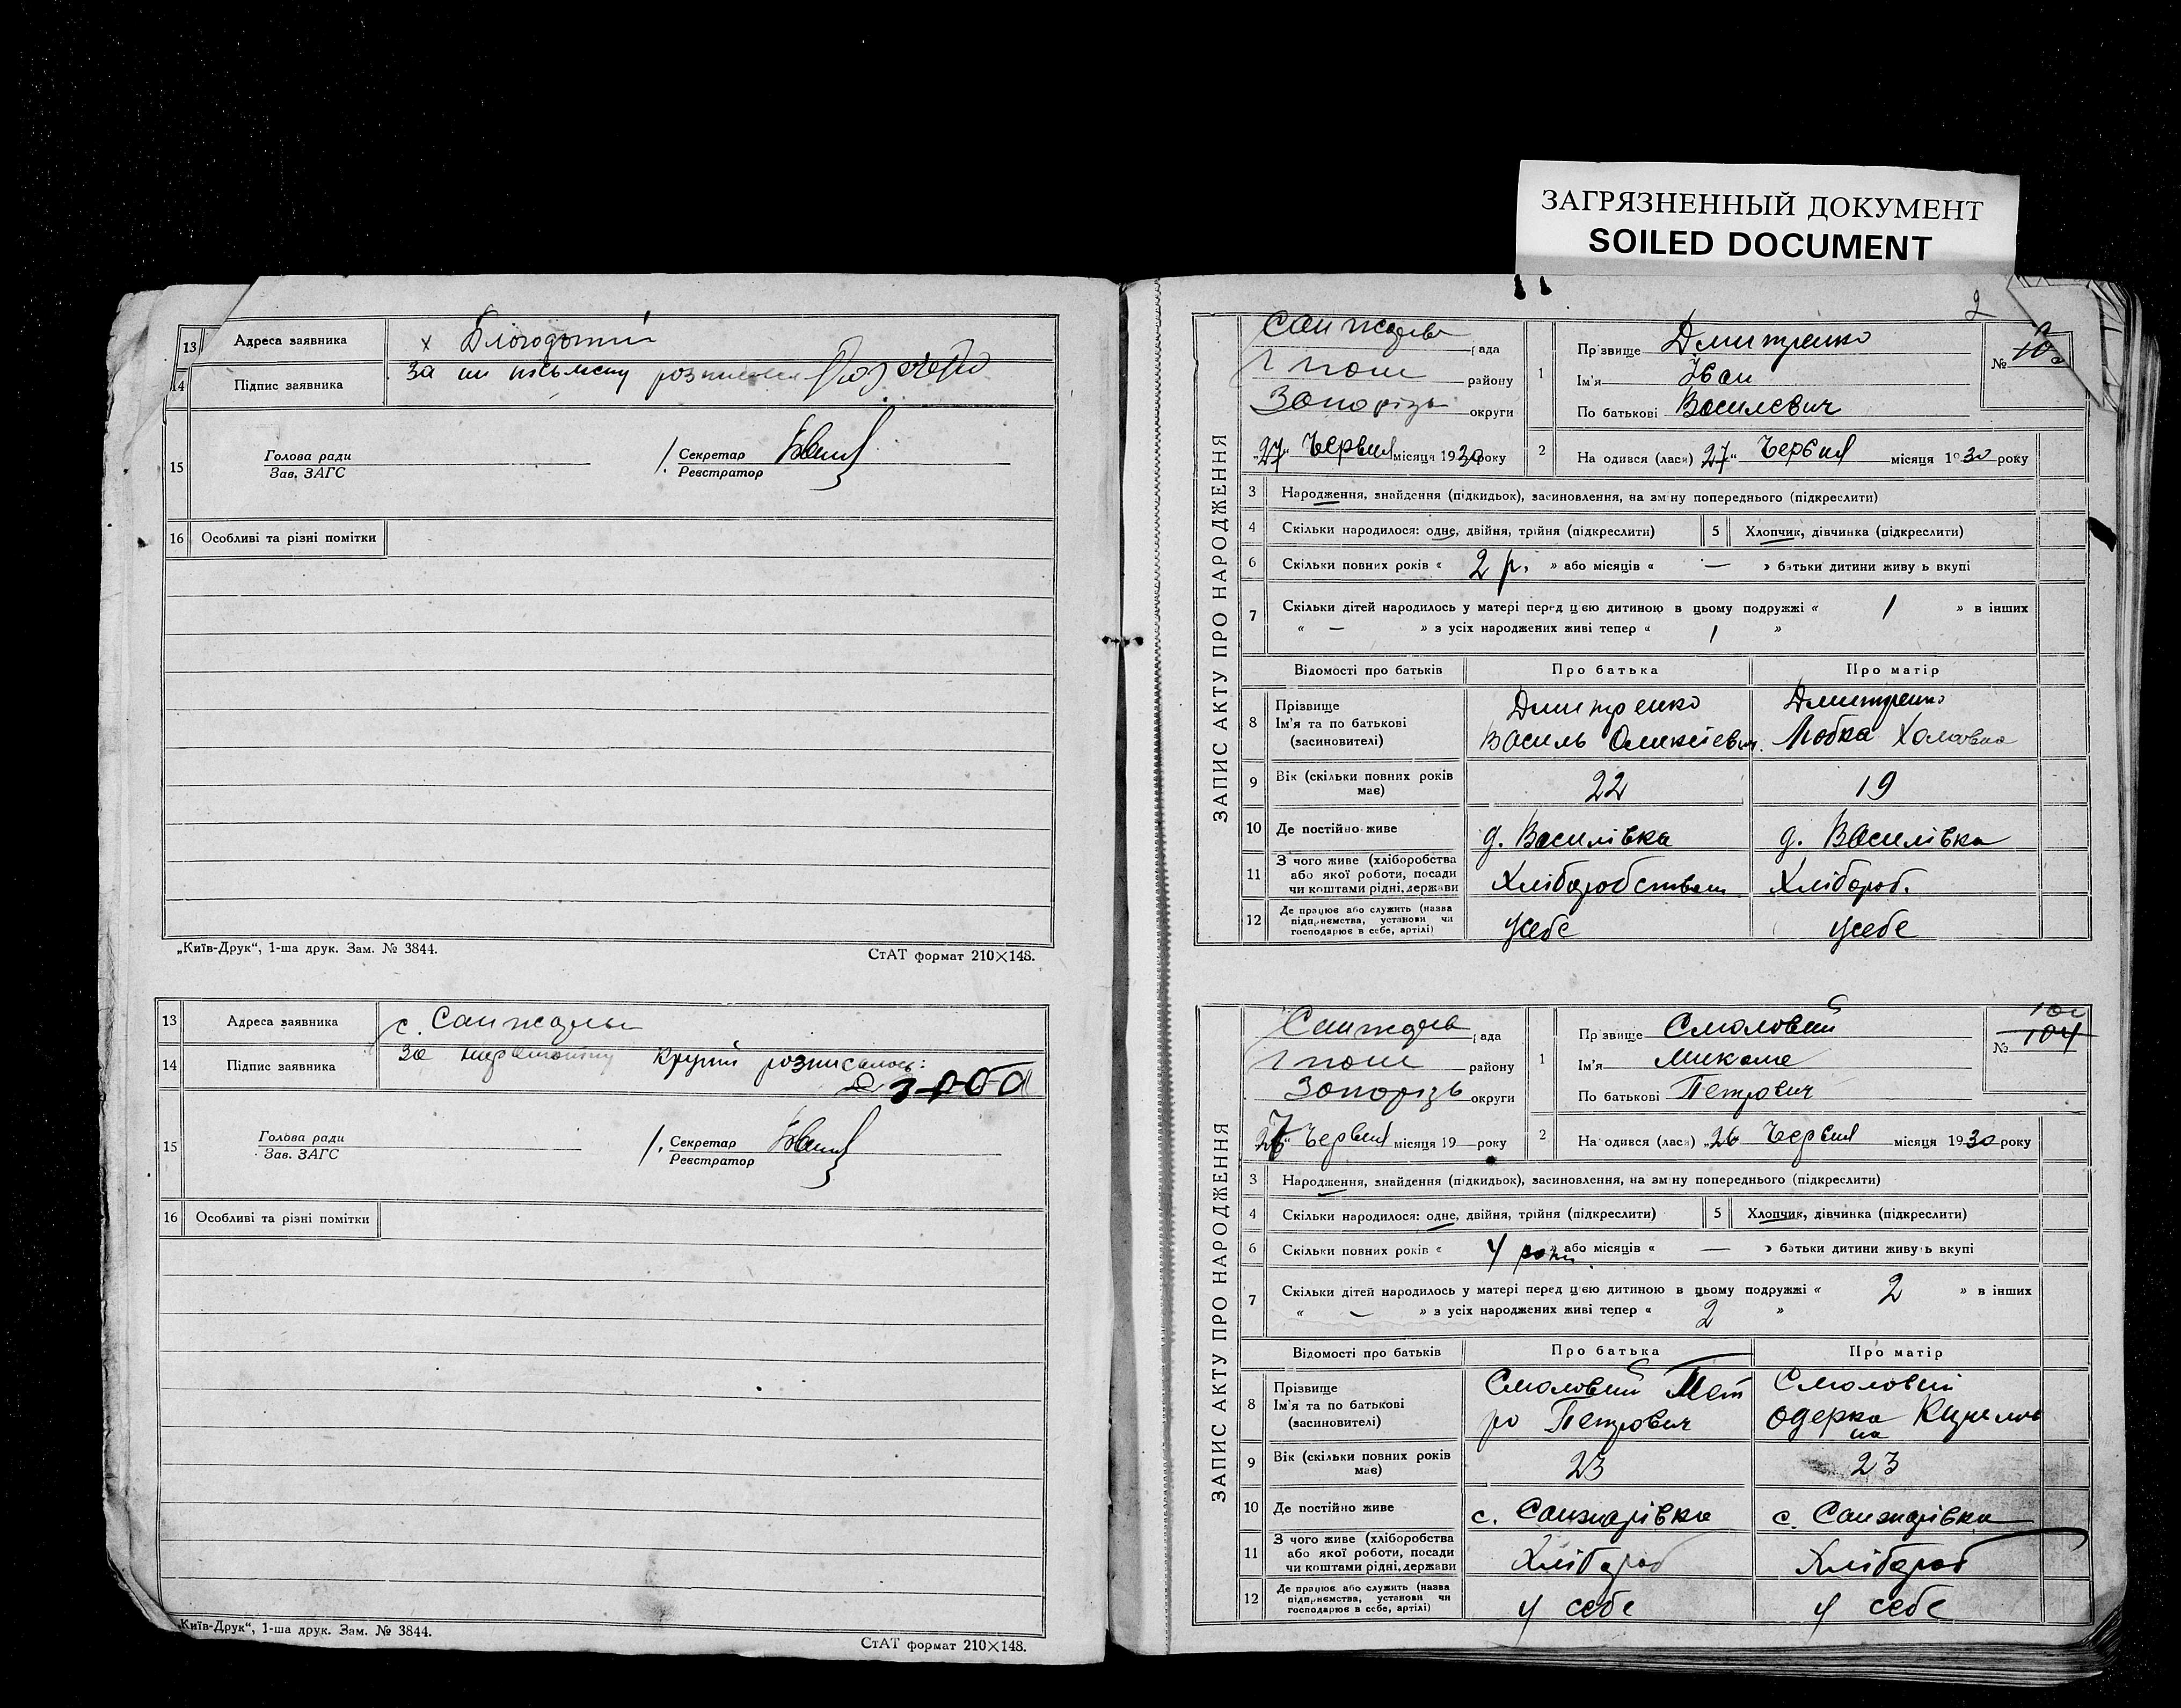 ЗАГРЯЗНЕННЫЙ ДОКУМЕНТ
SOILED DOCUMENT
13 Адреса заявника х
14 Підпис заявника За
15 Голова ради
Зав. ЗАГС
Секретар
Реєстратор
16 Особливі та різні помітки
„Київ-Друк“, 1-ша друк. Зам. № 3844.
СтАТ формат 210×148.
13 Адреса заявника с.
14 Підпис заявника За розписалось:
15 Голова ради
Зав. ЗАГС
Секретар
Реєстратор
16 Особливі та різні помітки
„Київ-Друк“, 1-ша друк. Зам. № 3844.
СтАТ формат 210×148.
2
ЗАПИС АКТУ ПРО НАРОДЖЕННЯ
рада
району
Запорізь округи
„27“ Червня місяця 1930 року
1 Прізвище Дмитренко
Ім'я Іван
По батькові Василевич
№
2 Народився (лась) „27“ Червня місяця 1930 року
3 Народження, знайдення (підкидьок), засиновлення, на зміну попереднього (підкреслити)
4 Скільки народилося: одне, двійня, трійня (підкреслити) 5 Хлопчик, дівчинка (підкреслити)
6 Скільки повних років « 2 р. » або місяців « — » батьки дитини живуть вкупі
7 Скільки дітей народилось у матері перед цією дитиною в цьому подружжі « 1 » в інших
« — » з усіх народжених живі тепер « 1 »
Відомості про батьків Про батька Про матір
8 Прізвище
Ім'я та по батькові
(засиновителі)
Дмитренко
Василь Олексієвич
Дмитренко
Любка
9 Вік (скільки повних років має) 22 19
10 Де постійно живе д. Василівка д. Василівка
11 З чого живе (хліборобства
або якої роботи, посади
чи коштами рідні, держави
Хліборобством Хлібороб.
12 Де працює або служить (назва
підприємства, установи чи
господарює в себе, артілі)
усебе усебе
ЗАПИС АКТУ ПРО НАРОДЖЕННЯ
рада
району
Запорізь округи
Червня місяця 19 — року
1 Прізвище Смоловий
Ім'я Микола
По батькові Петрович
№ 104
2 Народився (лась) „26 Червня місяця 1930 року
3 Народження, знайдення (підкидьок), засиновлення, на зміну попереднього (підкреслити)
4 Скільки народилося: одне, двійня, трійня (підкреслити) 5 Хлопчик, дівчинка (підкреслити)
6 Скільки повних років « 4 роки » або місяців « — » батьки дитини живуть вкупі
7 Скільки дітей народилось у матері перед цією дитиною в цьому подружжі « 2 » в інших
« — » з усіх народжених живі тепер « 2 »
Відомості про батьків Про батька Про матір
8 Прізвище
Ім'я та по батькові
(засиновителі)
Смоловий Пет
ро Петрович
Смоловий
Одерка
9 Вік (скільки повних років має) 23 23
10 Де постійно живе с. Санжарівка с. Санжарівка
11 З чого живе (хліборобства
або якої роботи, посади
чи коштами рідні, держави
Хлібороб Хлібороб
12 Де працює або служить (назва
підприємства, установи чи
господарює в себе, артілі)
у себе у себе